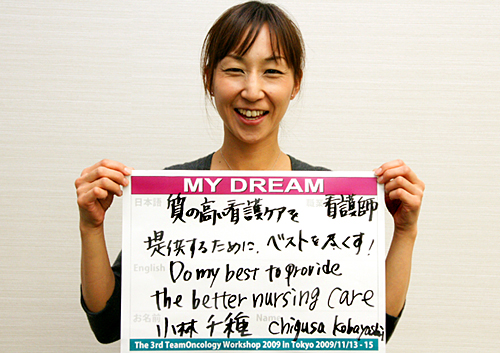 MY DREAM
日本語
質の高い看護ケアを 看護師
提供するために、ベストを尽くす!
English
Do my best to provide
the better nursing care
お名前 Name
小林 千種 Chigusa Kobayashi
The 3rd TeamOncology Workshop 2009 in Tokyo 2009/11/13 - 15